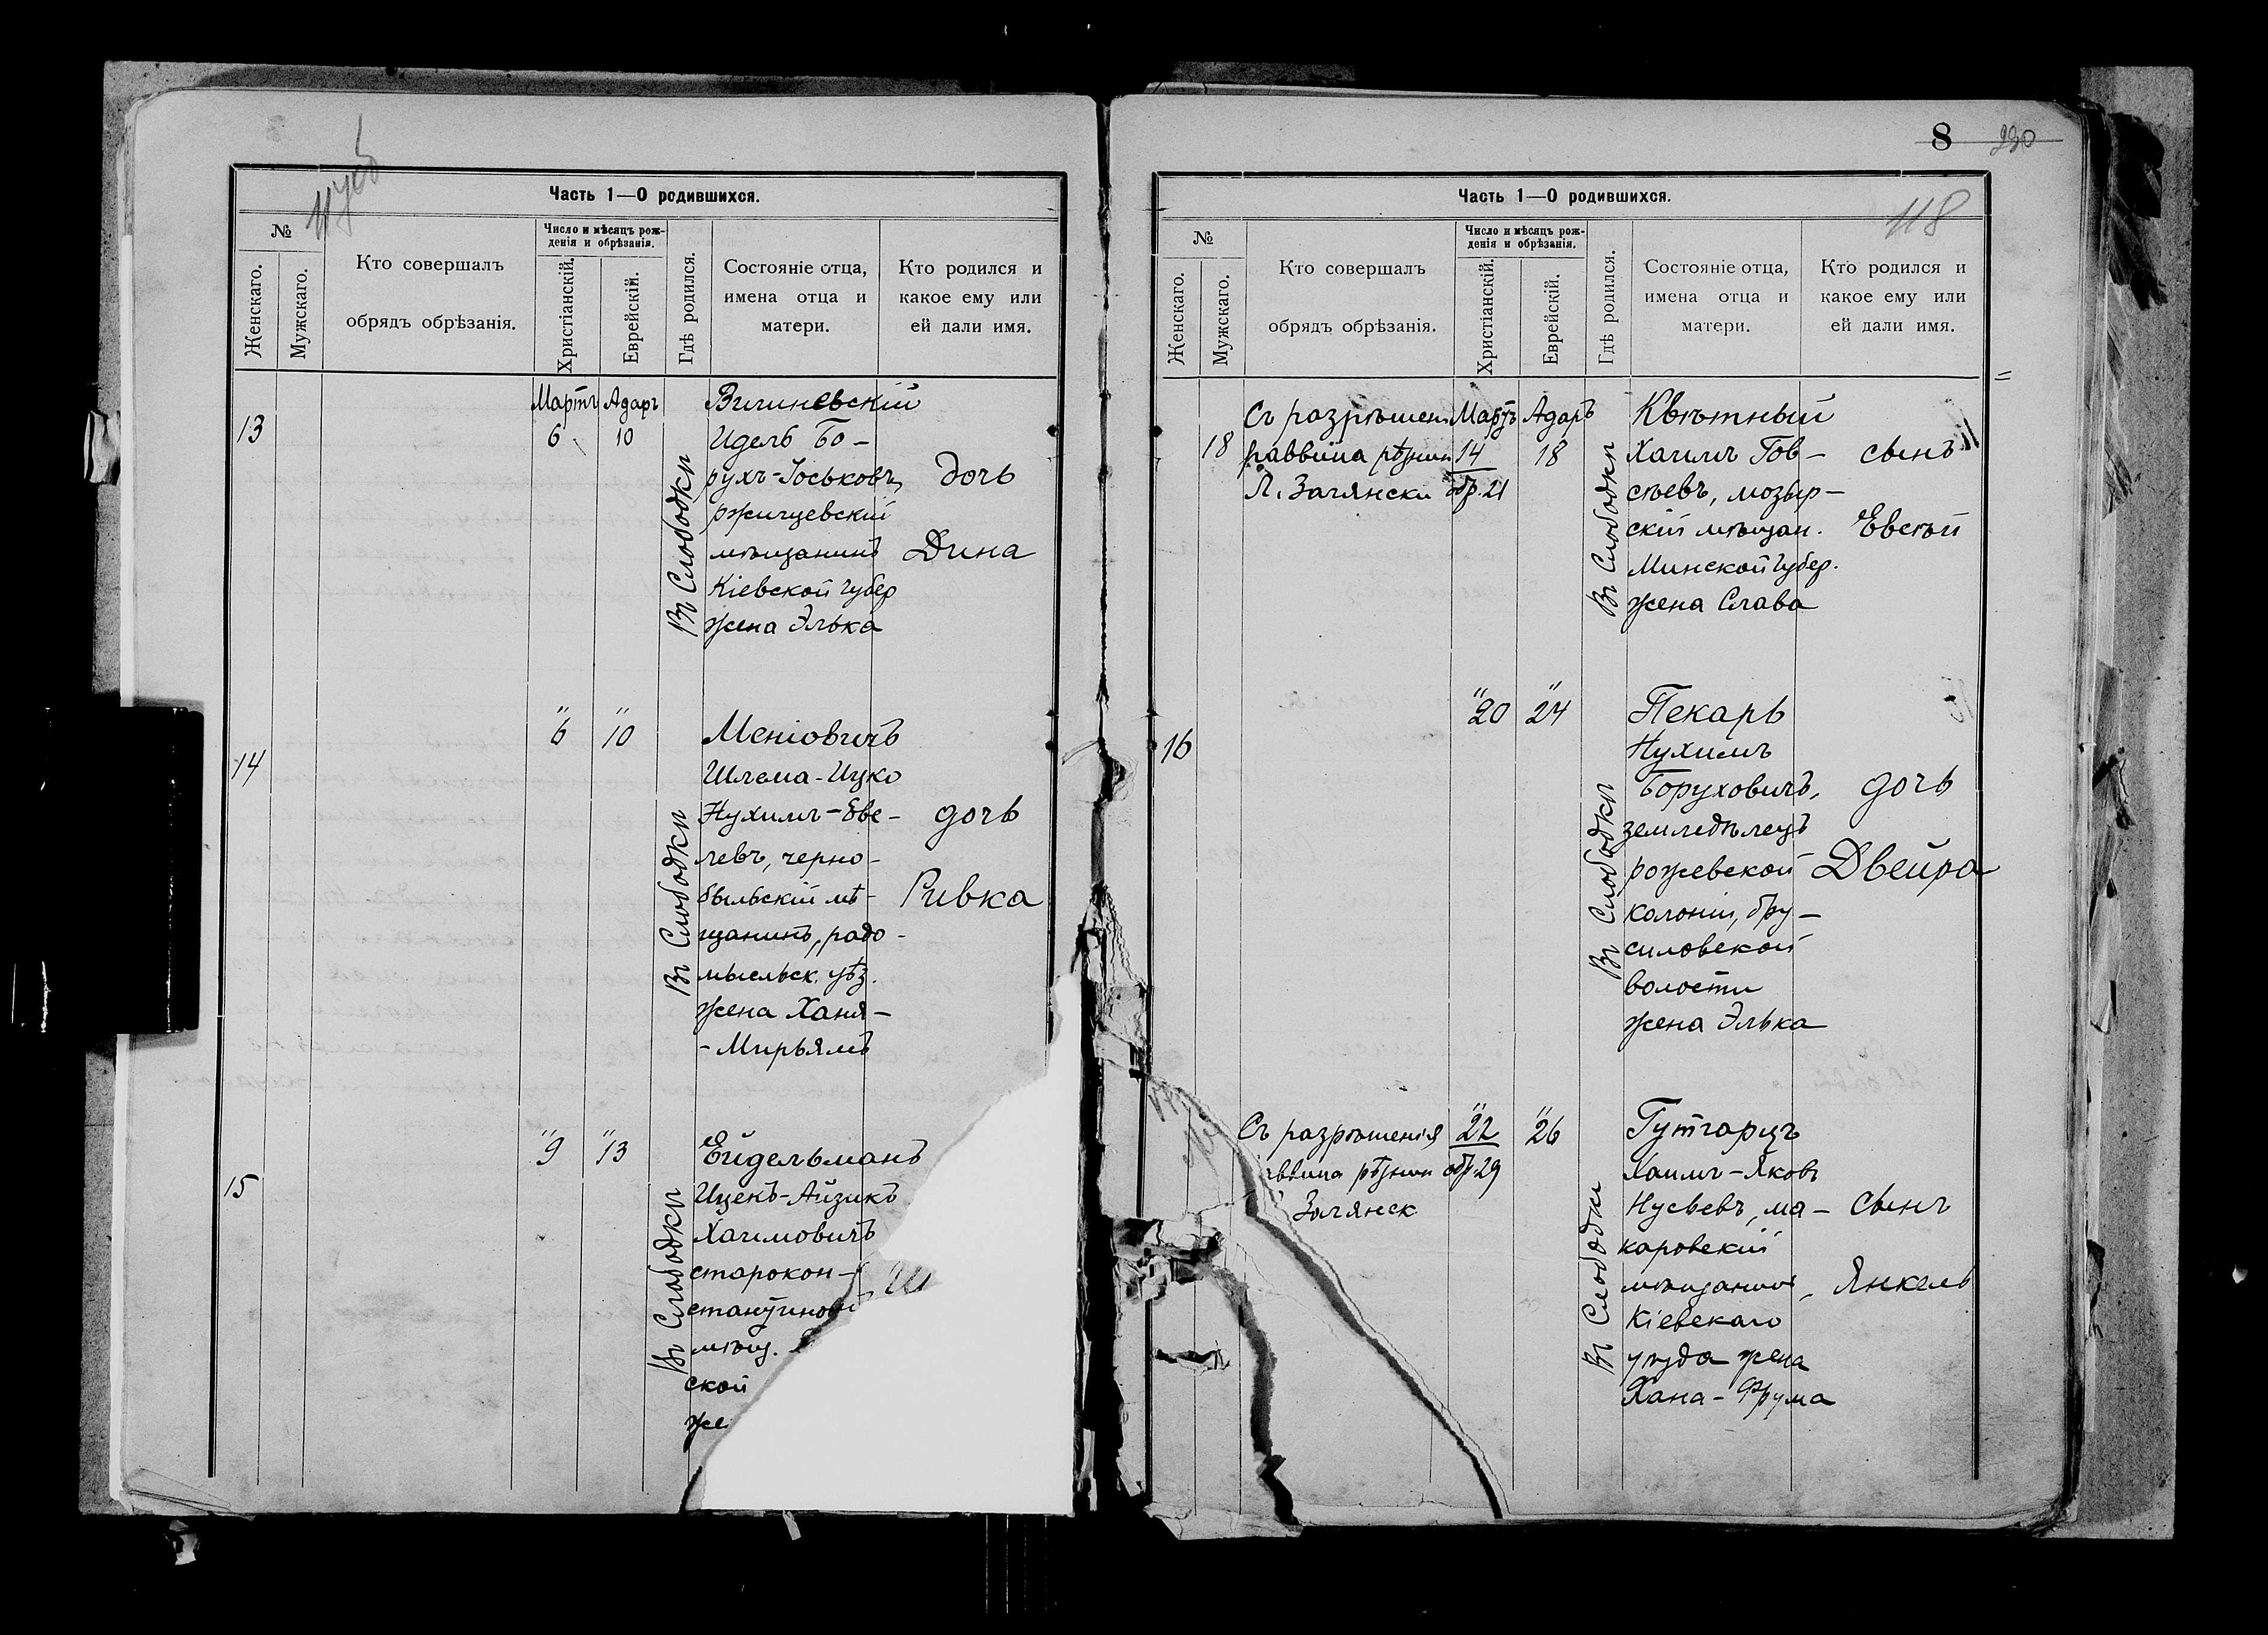 Часть 1—О родившихся.
№
Женскаго.
Мужскаго.
Кто совершалъ
обрядъ обрѣзанія.
Число и мѣсяцъ рож-
денія и обрѣзанія.
Христіанскій.
Еврейскій.
Гдѣ родился.
Состояніе отца,
имена отца и
матери.
Кто родился и
какое ему или
ей дали имя.
13
Мартъ Адаръ
6 10
Въ Слободки
Идель Бо-
рухъ-Іоськовъ,
ржищевскій
мѣщанинъ
Кіевской губер
жена Элька
дочь
Дина
14
" "
6 10
Въ Слободки
Меніовичъ
Шлема-Ицко
Нухимъ-Еве-
левъ, черно-
быльскій мѣ-
щанинъ, радо-
мысльск. уѣз.
жена Ханя-
-Мирьямъ
дочь
Ривка
15
" "
9 13
Въ Слободки
Ейдельманъ
Ицекъ-Айзикъ
Хаимовичъ
старокон-
стантинов
мѣщ.
ской
же
8 230
118
Часть 1—О родившихся.
№
Женскаго.
Мужскаго.
Кто совершалъ
обрядъ обрѣзанія.
Число и мѣсяцъ рож-
денія и обрѣзанія.
Христіанскій.
Еврейскій.
Гдѣ родился.
Состояніе отца,
имена отца и
матери.
Кто родился и
какое ему или
ей дали имя.
18
Съ разрѣшен
раввина рѣзник
Л. Заглянски
Мартъ Адаръ
14 18
обр. 21
Въ Слободки
Квѣтный
Хаимъ Гов-
сѣевъ, мозыр-
скій мѣщан.
Минской губер.
жена Слава
сынъ
Евсѣй
16
" "
20 24
Въ Слободки
Пекарь
Нухимъ
Боруховичъ,
земледѣлецъ
рожевской
колоніи, бру-
силовской
волости
жена Элька
дочь
Двейра
Съ разрѣшенія
аввина рѣзник
" "
22 26
обр. 29
Въ Слободки
Гутгарцъ
Хаимъ-Яковъ
Нусьевъ, ма-
каровскій
мѣщанинъ,
Кіевскаго
уѣзда жена
Хана-Фрума
сынъ
Янкель